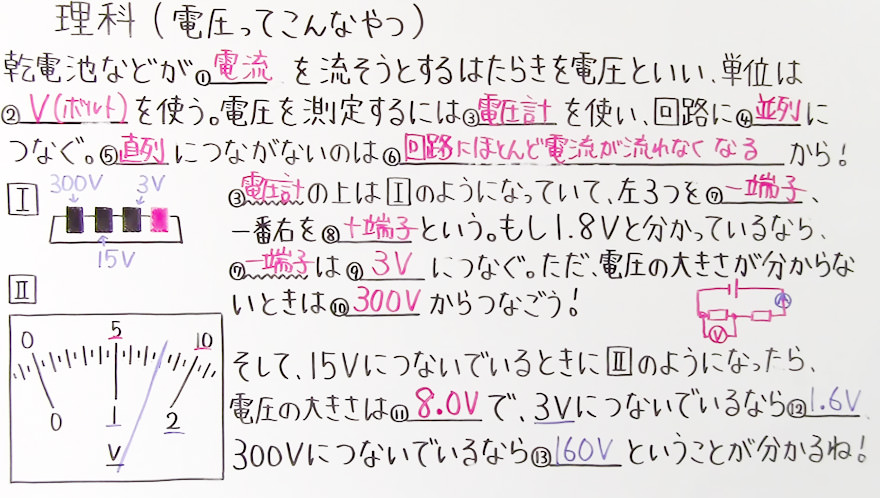 理科(電圧ってこんなやつ)
乾電池などが①電流を流そうとするはたらきを電圧といい、単位は
②V(ボルト)を使う。電圧を測定するには③電圧計を使い、回路に④並列に
つなぐ。⑤直列につながないのは⑥回路にほとんど電流が流れなくなるから!
I
300V 3V
15V
③電圧計の上はIのようになっていて、左3つを⑦−端子、
一番右を⑧+端子という。もし1.8Vと分かっているなら、
⑦−端子は⑨3Vにつなぐ。ただ、電圧の大きさが分からな
いときは⑩300Vからつなごう!
A
V
II
0 5 10
0 1 2
V
そして、15VにつないでいるときにIIのようになったら、
電圧の大きさは⑪8.0Vで、3Vにつないでいるなら⑫1.6V、
300Vにつないでいるなら⑬160Vということが分かるね!